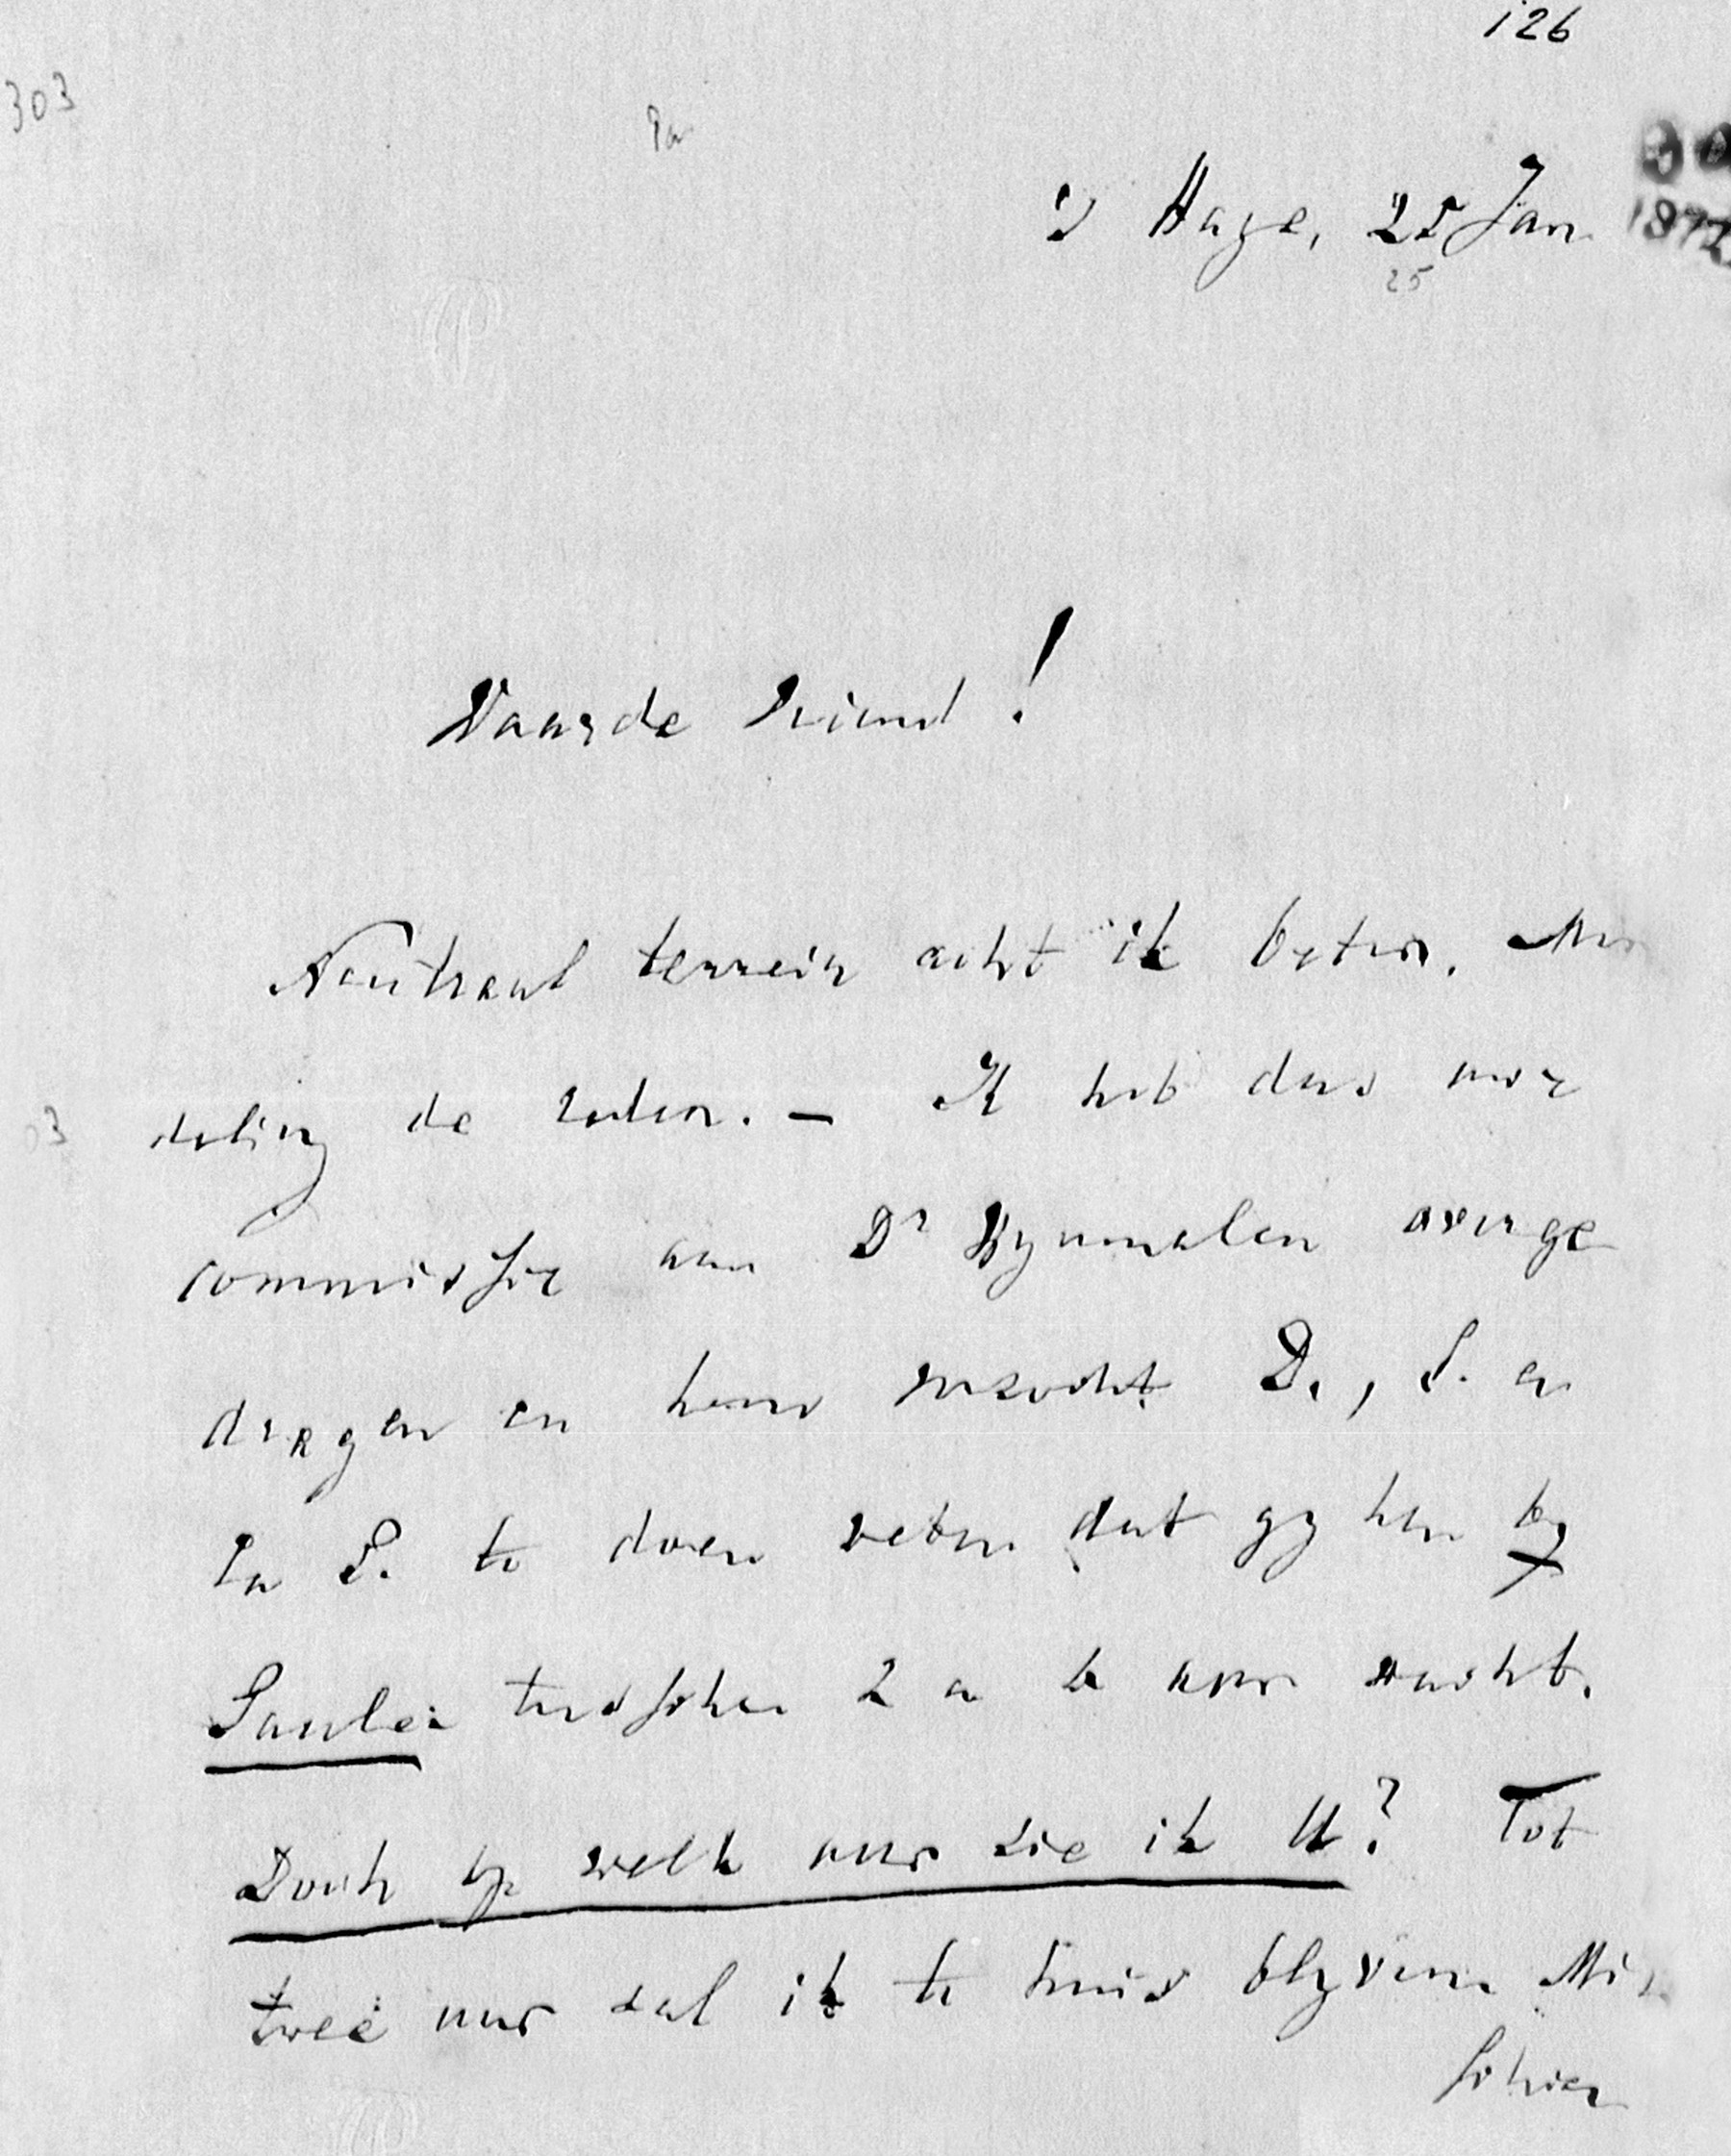 126
303
Pa
's Hage, 25 Jan
187
25
Waarde Vriend!
Neutraal terrein acht ik beter. Mon
deling de reden. — Ik heb dus mijn
commissie aan Dr Bijnmalen overge
dragen en hem verzocht D., S. en
te doen weten dat gij hen bij
Saulei tusschen 2 a uur wacht.
Doch op welk uur zie ik U? Tot
twee uur zal ik te huis blijven. Mis
schien